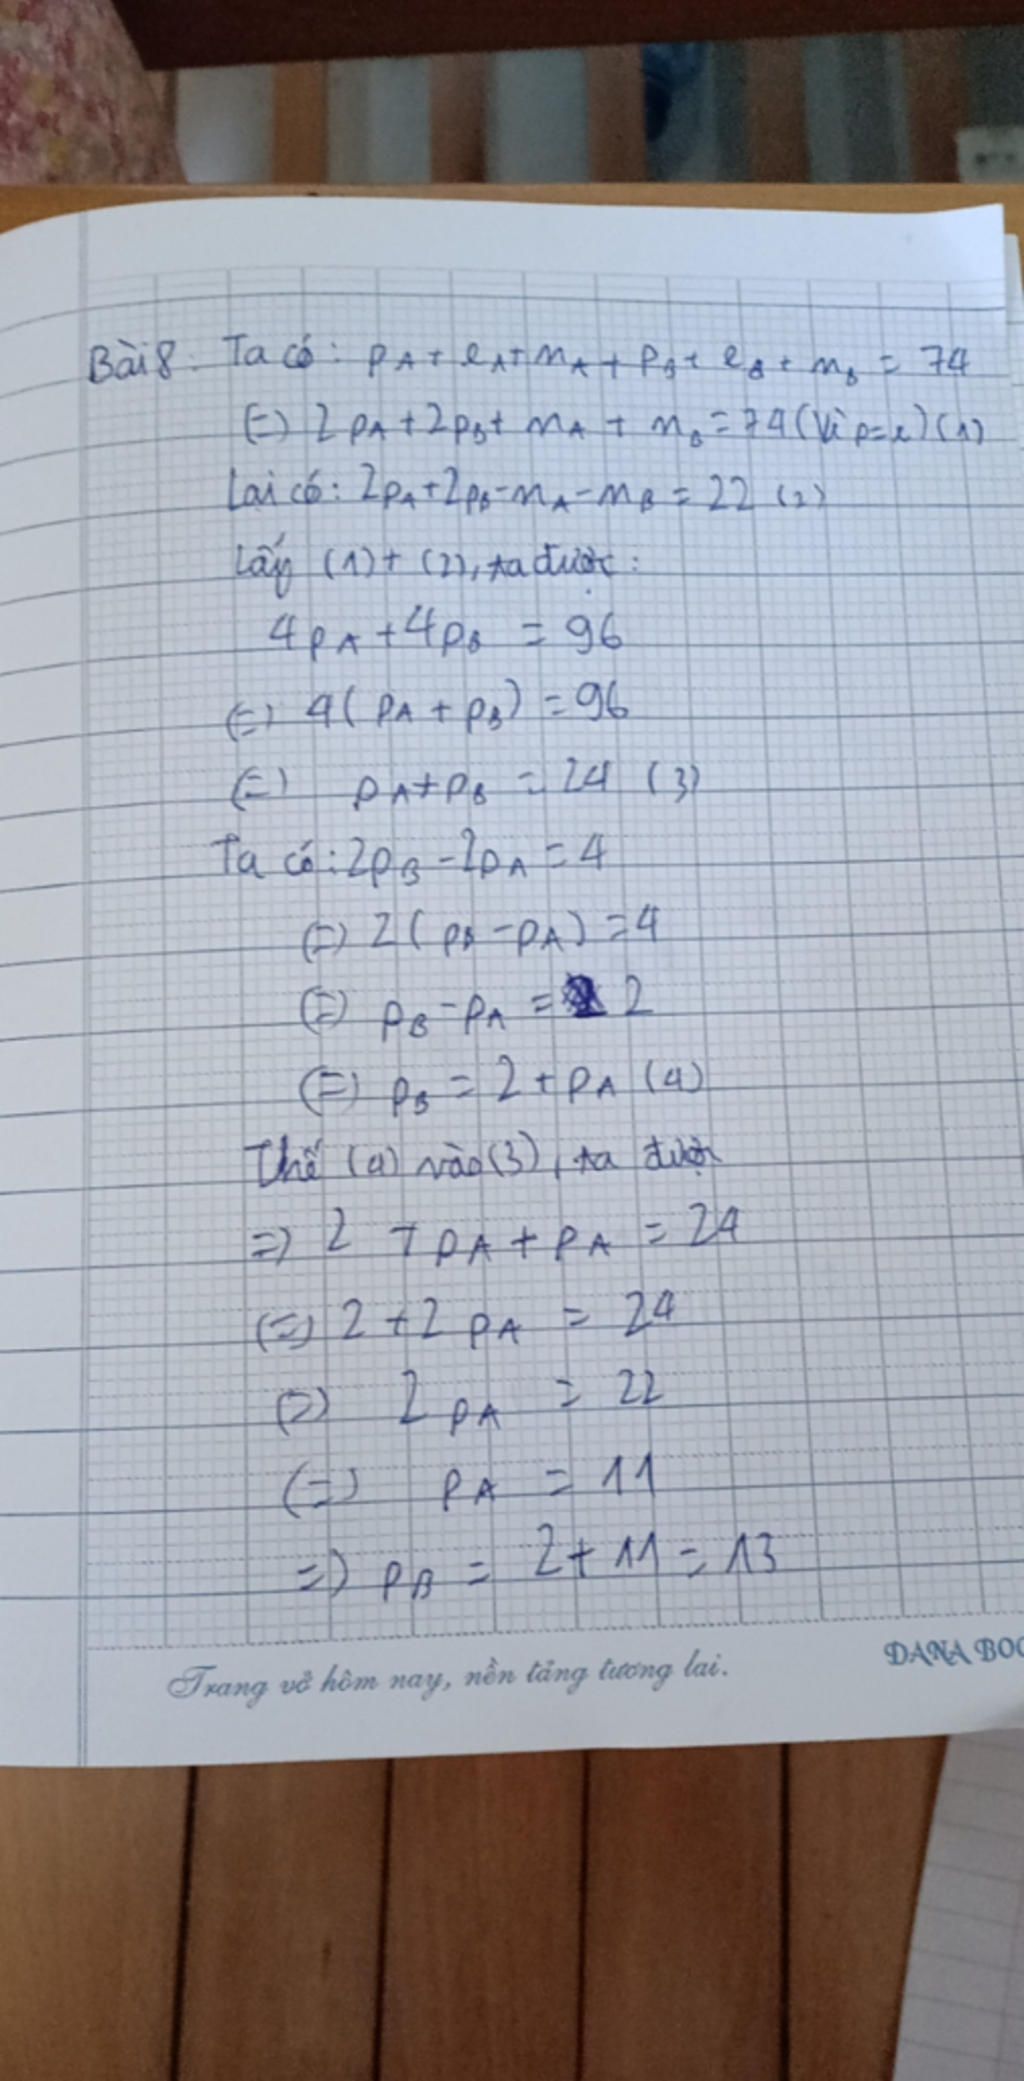 Bài 8: Ta có: pA + eA + nA + pB + eB + nB = 74
(=) 2pA + 2pB + nA + nB = 74 (Vì p=e) (1)
Lại có: 2pA + 2pB - nA - nB = 22 (2)
Lấy (1) + (2), ta được:
4pA + 4pB = 96
(=) 4(pA + pB) = 96
(=) pA + pB = 24 (3)
Ta có: 2pB - 2pA = 4
(=) 2(pB - pA) = 4
(=) pB - pA = 2
(=) pB = 2 + pA (4)
Thế (4) vào (3), ta được
=) 2 + pA + pA = 24
(=) 2 + 2pA = 24
(=) 2pA = 22
(=) pA = 11
=) pB = 2 + 11 = 13
Trang vở hôm nay, nền tảng tương lai.
DANA BOO